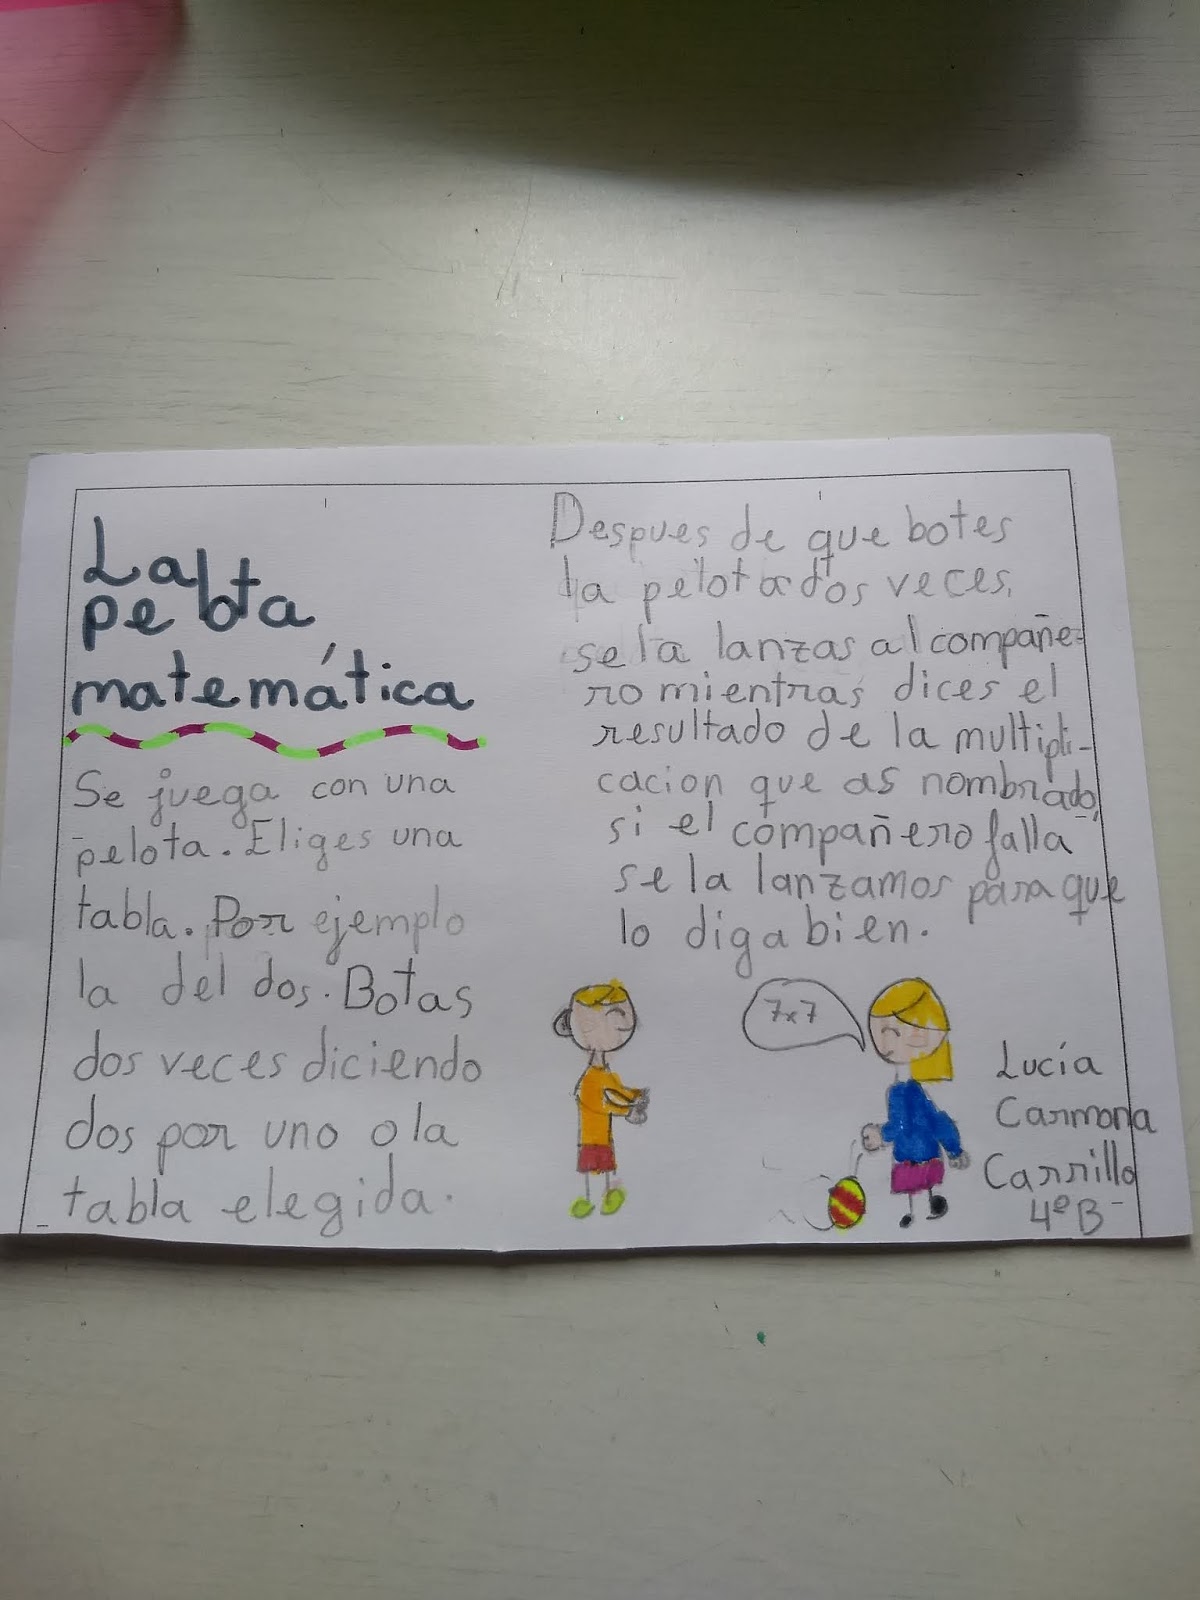 La
pelota
matemática
Se juega con una
pelota. Eliges una
tabla. Por ejemplo
la del dos. Botas
dos veces diciendo
dos por uno o la
tabla elegida.
Despues de que botes
la pelota dos veces,
se la lanzas al compañe-
ro mientras dices el
resultado de la multipli-
cacion que as nombrado,
si el compañero falla
se la lanzamos para que
lo diga bien.
7x7
Lucía
Carmona
Carrillo
4ºB